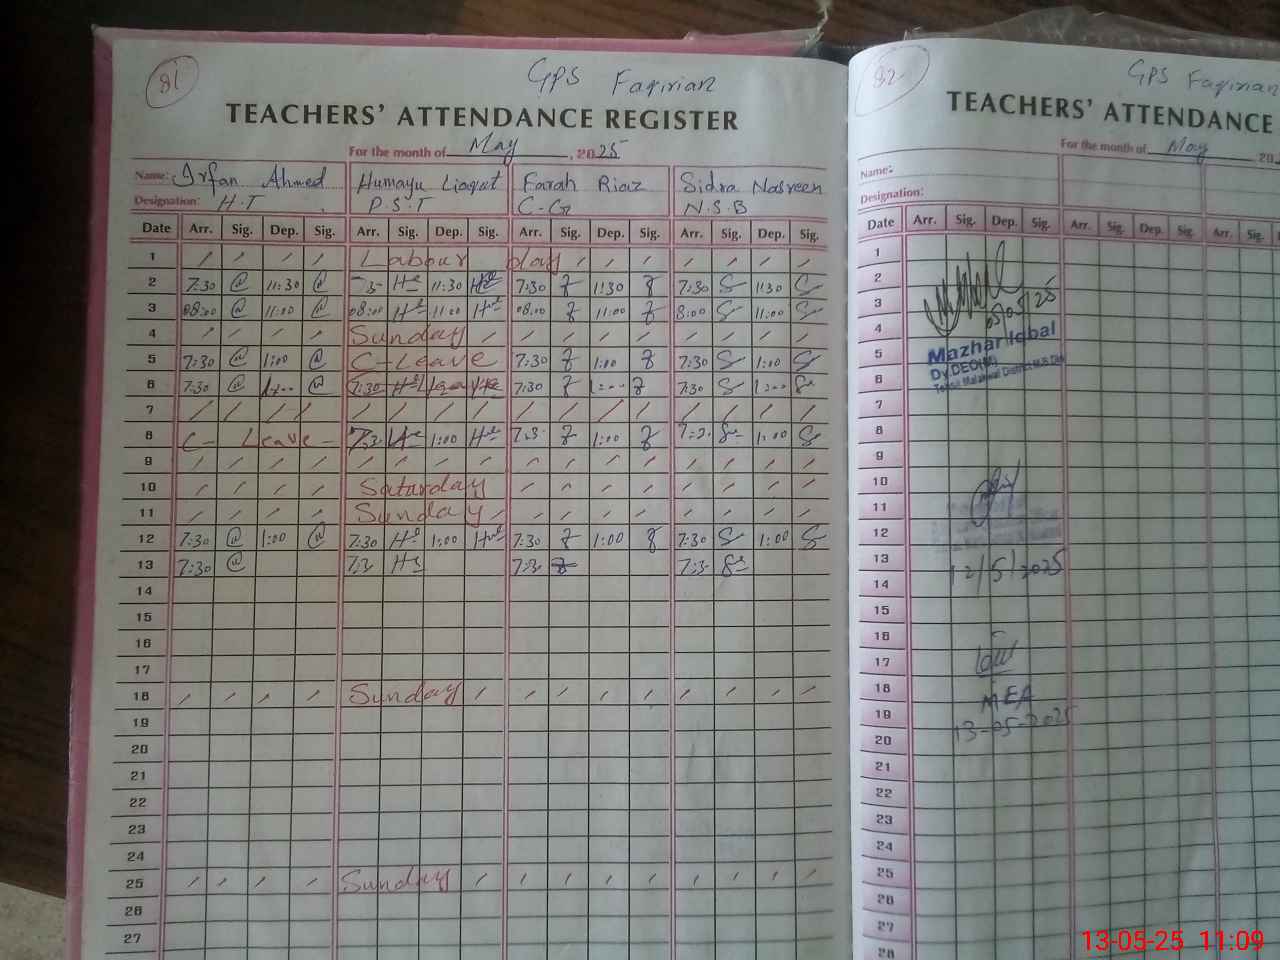 81
GPS Faqirian
TEACHERS' ATTENDANCE REGISTER
For the month of May, 2025
Name: Irfan Ahmed Humayu Liaqat Farah Riaz Sidra Nasreen
Designation: H.T P.S.T C-G N.S.B
Date Arr. Sig. Dep. Sig. Arr. Sig. Dep. Sig. Arr. Sig. Dep. Sig. Arr. Sig. Dep. Sig.
1 Labour Day
2 7:30 11:30 11:30 7:30 11:30 7:30 11:30
3 08:00 11:00 08:00 11:00 08:00 11:00 8:00 11:00
4 Sunday
5 7:30 1:00 C-Leave 7:30 1:00 7:30 1:00
6 7:30 1:00 7:30 7:30 1:00 7:30 1:00
7
8 C-Leave 7:3 1:00 7:3 1:00 1:00
9
10 Saturday
11 Sunday
12 7:30 1:00 7:30 1:00 7:30 1:00 7:30 1:00
13 7:30 7:3 7:3 7:3
14
15
16
17
18 Sunday
19
20
21
22
23
24
25 Sunday
26
27
82
GPS Faqirian
TEACHERS' ATTENDANCE
For the month of May 202
Name:
Designation:
Date Arr. Sig. Dep. Sig. Arr. Sig. Dep. Sig. Arr. Sig.
1
2
3 05/05/25
4
5 Mazhar Iqbal
6 Dy.DEO(M)
Tehsil Malakwal District M.B.Din
7
8
9
10
11
12
13 12/5/2025
14
15
16
17
18 MEA
19 13-05-2025
20
21
22
23
24
25
26
27
28
13-05-25 11:09